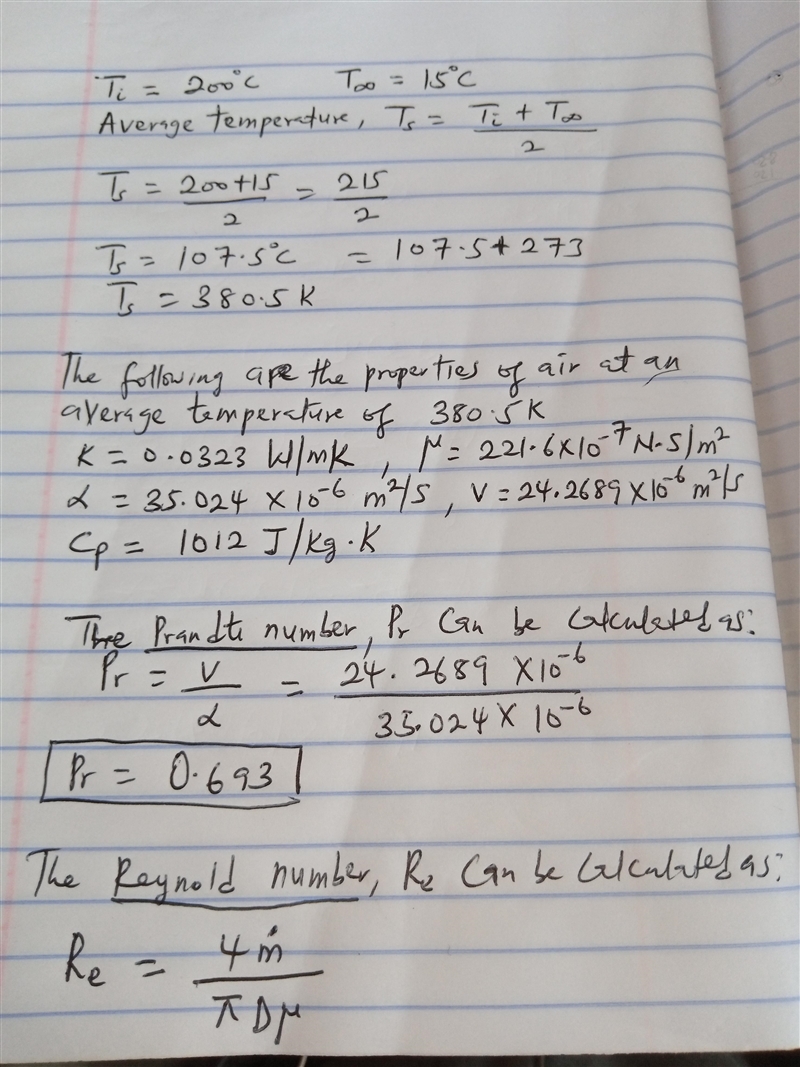 Ti = 200°C T∞ = 15°C
Average temperature, Ts = Ti + T∞ / 2
Ts = 200+15 / 2 = 215 / 2
Ts = 107.5°C = 107.5 + 273
Ts = 380.5 K
The following are the properties of air at an
average temperature of 380.5 K
K = 0.0323 W/mK, μ = 221.6×10⁻⁷ N.S/m²
α = 35.024 × 10⁻⁶ m²/s, V = 24.2689 × 10⁻⁶ m²/s
Cp = 1012 J/kg.K
The Prandtl number, Pr can be calculated as:
Pr = V / α = 24.2689 × 10⁻⁶ / 35.024 × 10⁻⁶
Pr = 0.693
The Reynold number, Re can be calculated as:
Re = 4ṁ / πDμ